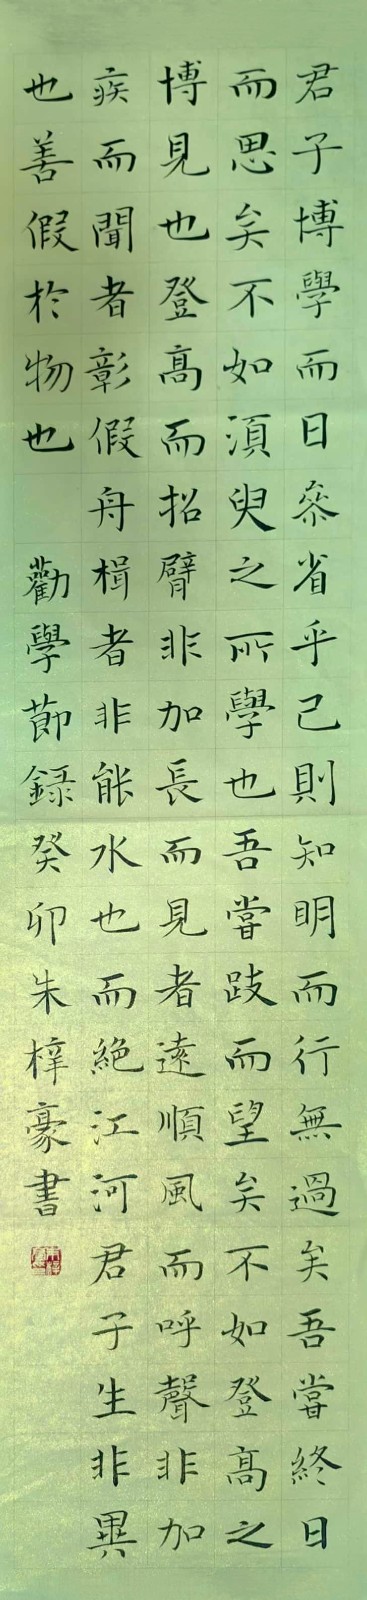 君子博學而日叅省乎己則知明而行無過矣吾嘗終日
而思矣不如湏臾之所學也吾嘗跂而望矣不如登髙之
博見也登髙而招臂非加長而見者遠順風而呼聲非加
疾而聞者彰假舟楫者非能水也而絕江河君子生非異
也善假於物也 勸學節録癸卯朱梓豪書